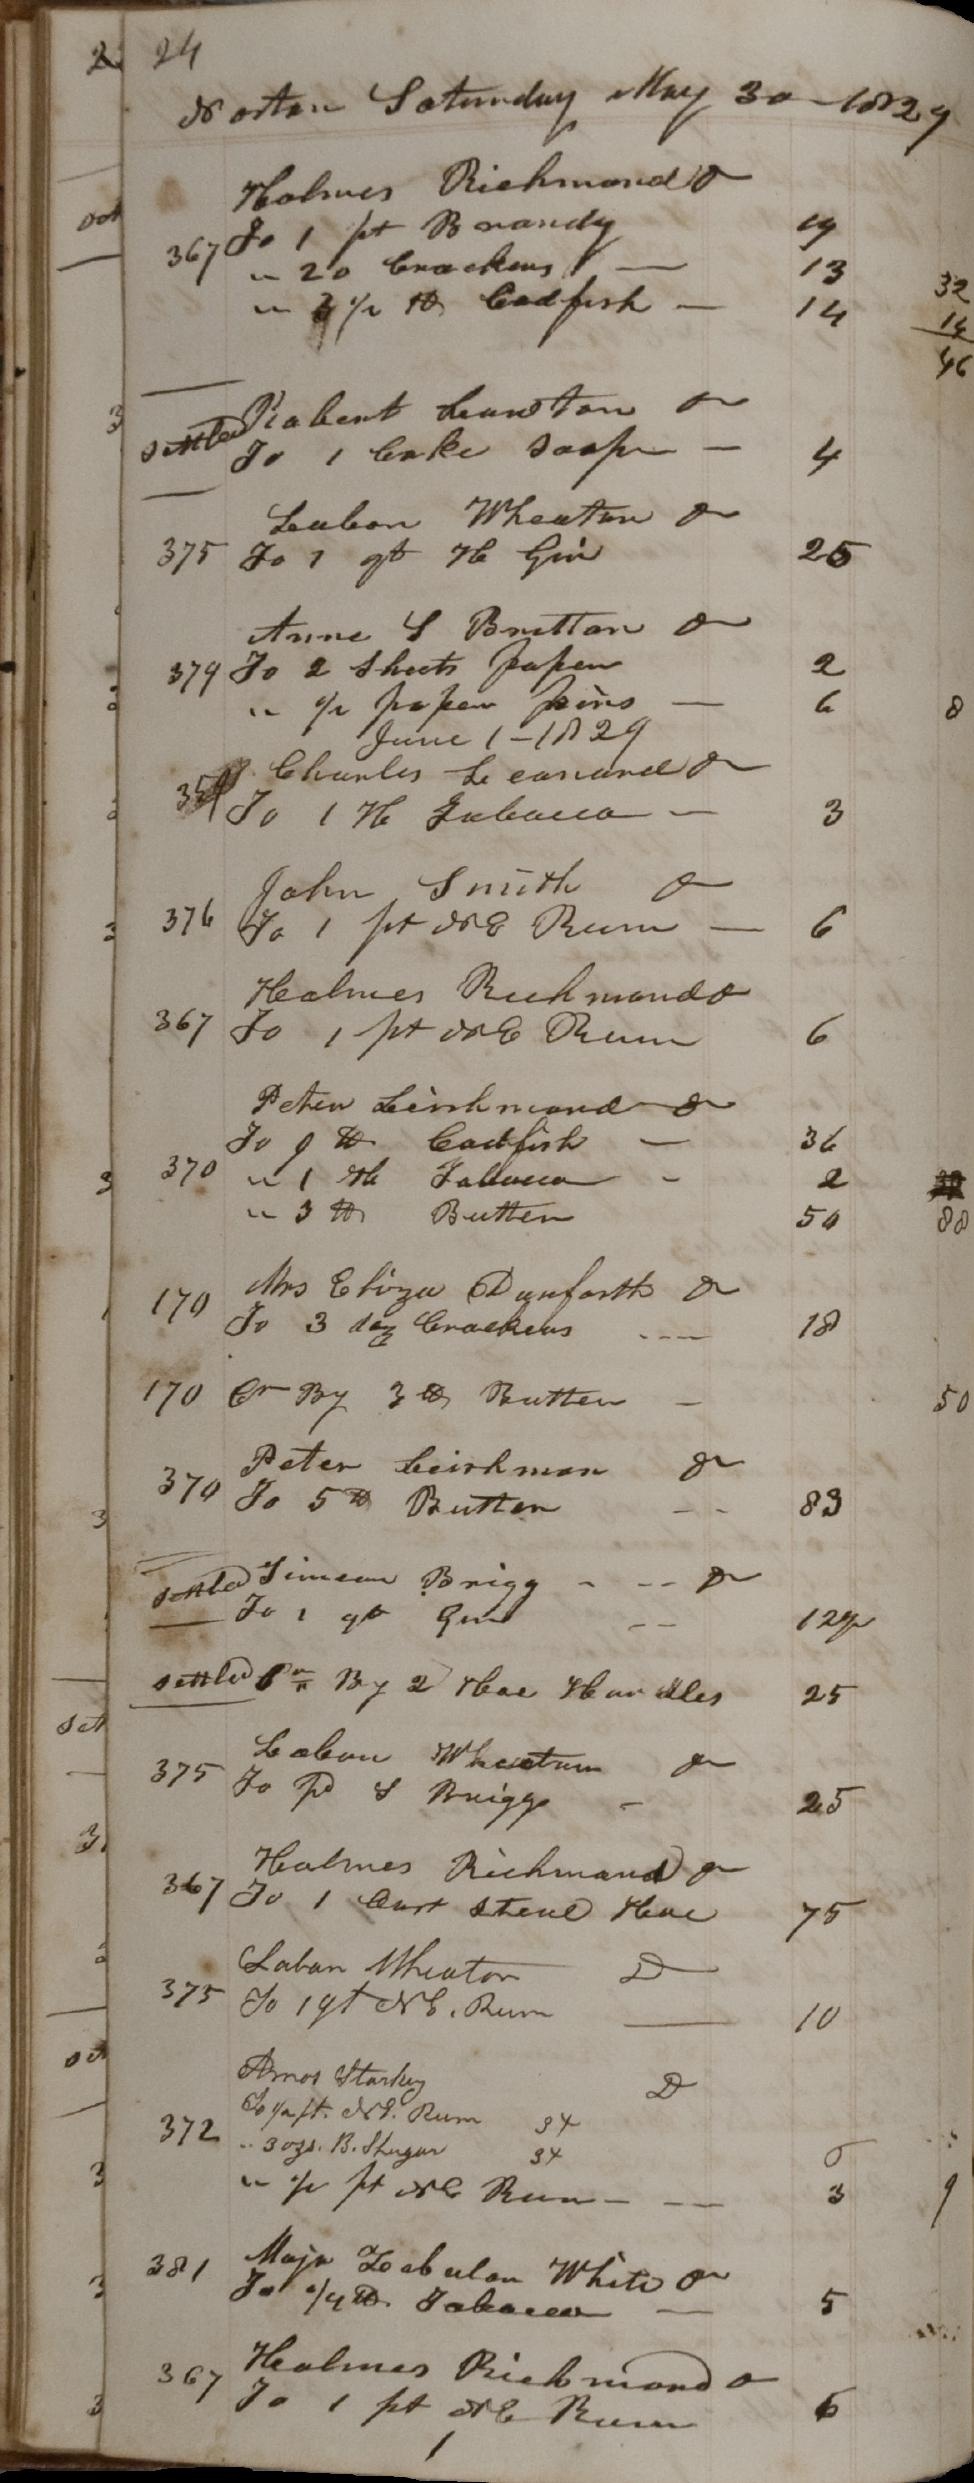 24
Norton Saturday May 30 1829
Holmes Richmond Dr
367 To 1 pt Brandy 19
" 20 Crackers — 13 32
" 3 1/2 lb Codfish — 14 14
46
Robert Dr
settled To 1 Cake Soap — 4
Laban Wheaton Dr
375 To 1 qt H Gin 25
Anne S Britton Dr
379 To 2 Sheets papen 2
" 1/2 papen pins — 6 8
June 1 - 1829
Charles Leonard Dr
To 1 H Tobacco — 3
John Smith Dr
376 To 1 pt NE Rum — 6
Holmes Richmond Dr
367 To 1 pt NE Rum 6
Peter Dr
To 9 lb Codfish — 36
370 " 1 H Tobacco - 2
" 3 lb Butter 50 88
Mrs Eliza Danforth Dr
170 To 3 doz Crackers 18
170 Cr By 3 lb Butter - 50
Peter Dr
370 To 5 lb Butter 83
settled Simeon Brigg Dr
To 1 qt Gin 12 1/2
settled Cr By 2 Hoe Handles 25
Laban Wheaton Dr
375 To pd S Briggs - 25
Holmes Richmond Dr
367 To 1 Cast Steel Hoe 75
Laban Wheaton D
375 To 1 qt N.E. Rum — 10
Amos Starkey D
To 1/2 pt. N.E. Rum 34
372 " 3 ozs. B. Shugar 34 6
" 1/2 pt NE Rum - — 3 9
381 Majr Zebulon White Dr
To 1/4 lb Tobacco — 5
Holmes Richmond Dr
367 To 1 pt NE Rum 6